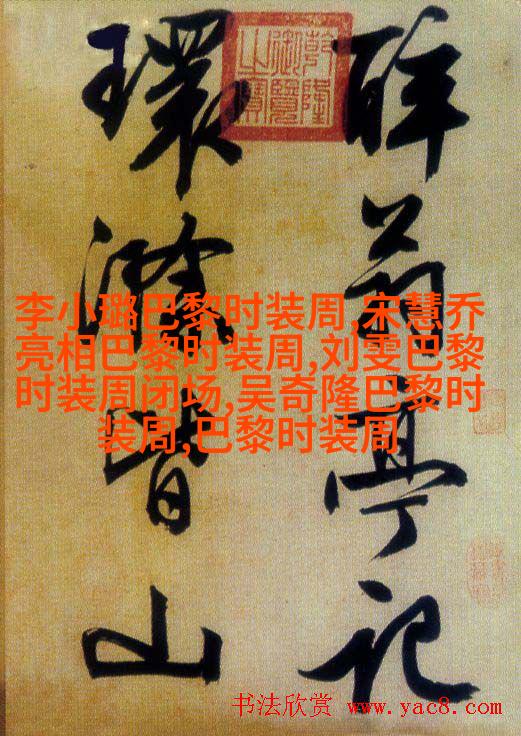 醉翁亭記
環滁皆山
乾隆
御覽
之寶
李小璐巴黎时装周,宋慧乔
亮相巴黎时装周,刘雯巴黎
时装周闭场,吴奇隆巴黎时
装周,巴黎时装周
书法欣赏 www.yac8.com